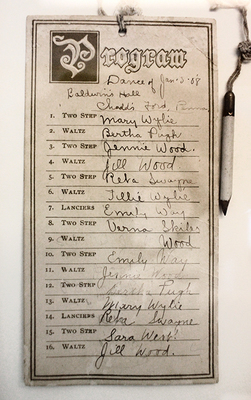 Program
Dance of Jan-3-08
Baldwin's Hall
Chadds Ford, Penna
1. TWO STEP Mary Wylie
2. WALTZ Bertha Pugh
3. TWO STEP Jennie Wood.
4. WALTZ Jill Wood
5. TWO STEP Reba Swayne
6. WALTZ Tillie Wylie
7. LANCIERS Emily Way
8. TWO STEP Verna Skiles
9. WALTZ Wood
10. TWO STEP Emily Way
11. WALTZ Jennie Wood
12. TWO STEP Bertha Pugh
13. WALTZ Mary Wylie
14. LANCIERS Reba Swayne
15. TWO STEP Sara
16. WALTZ Jill Wood.